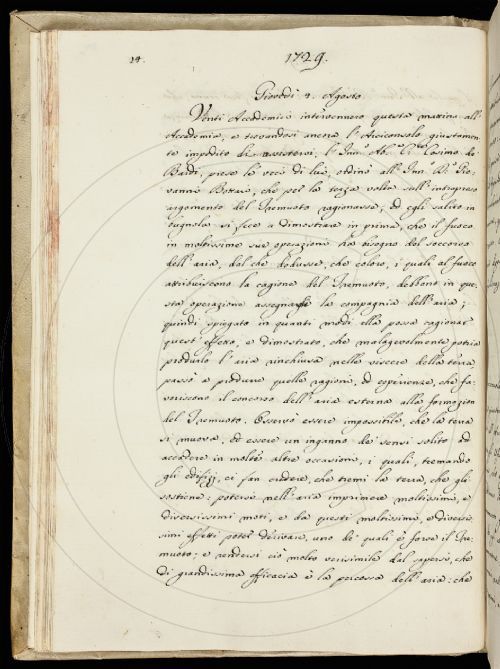 14.
1729.
Giovedì 4. Agosto
Venti Accademici intervennero questa mattina all'
Accademia, e trovandosi ancora l'Arciconsolo giustamen-
te impedito di assistervi, l'Inn.
Bardi, prese la vece di lui, ordinò all'Inn. Gio-
vanni Bottari, che per la terza volta sull'intrapreso
argomento del Tremuoto ragionasse; ed egli salito in
bugnola si fece a dimostrare in prima, che il fuoco
in moltissime sue operazioni ha bisogno del soccorso
dell'aria, dal che dedusse, che coloro, i quali al fuoco
attribuiscono la cagione del Tremuoto, debbono in que-
sta operazione assegnargli la compagnia dell'aria;
quindi spiegato in quanti modi ella possa cagionar
quest'effetto, e dimostrato, che malagevolmente potria
produrlo l'aria rinchiusa nelle viscere della terra,
passò a produrre quelle ragioni, ed esperienze, che fa-
voriscono il concorso dell'aria esterna alla formazion
del Tremuoto. Osservò essere impossibile, che la terra
si muova, ed essere un inganno de' sensi solito ad
accadere in molte altre occasioni, i quali, tremando
gli edifizj, ci fan credere, che tremi la terra, che gli
sostiene: potersi nell'aria imprimere moltissimi, e
diversissimi moti, e da questi moltissimi, e diversis-
simi effetti poter derivare, uno de' quali è forse il Tre-
muoto; e rendersi ciò molto verisimile dal sapersi, che
di grandissima efficacia è la percossa dell'aria: che